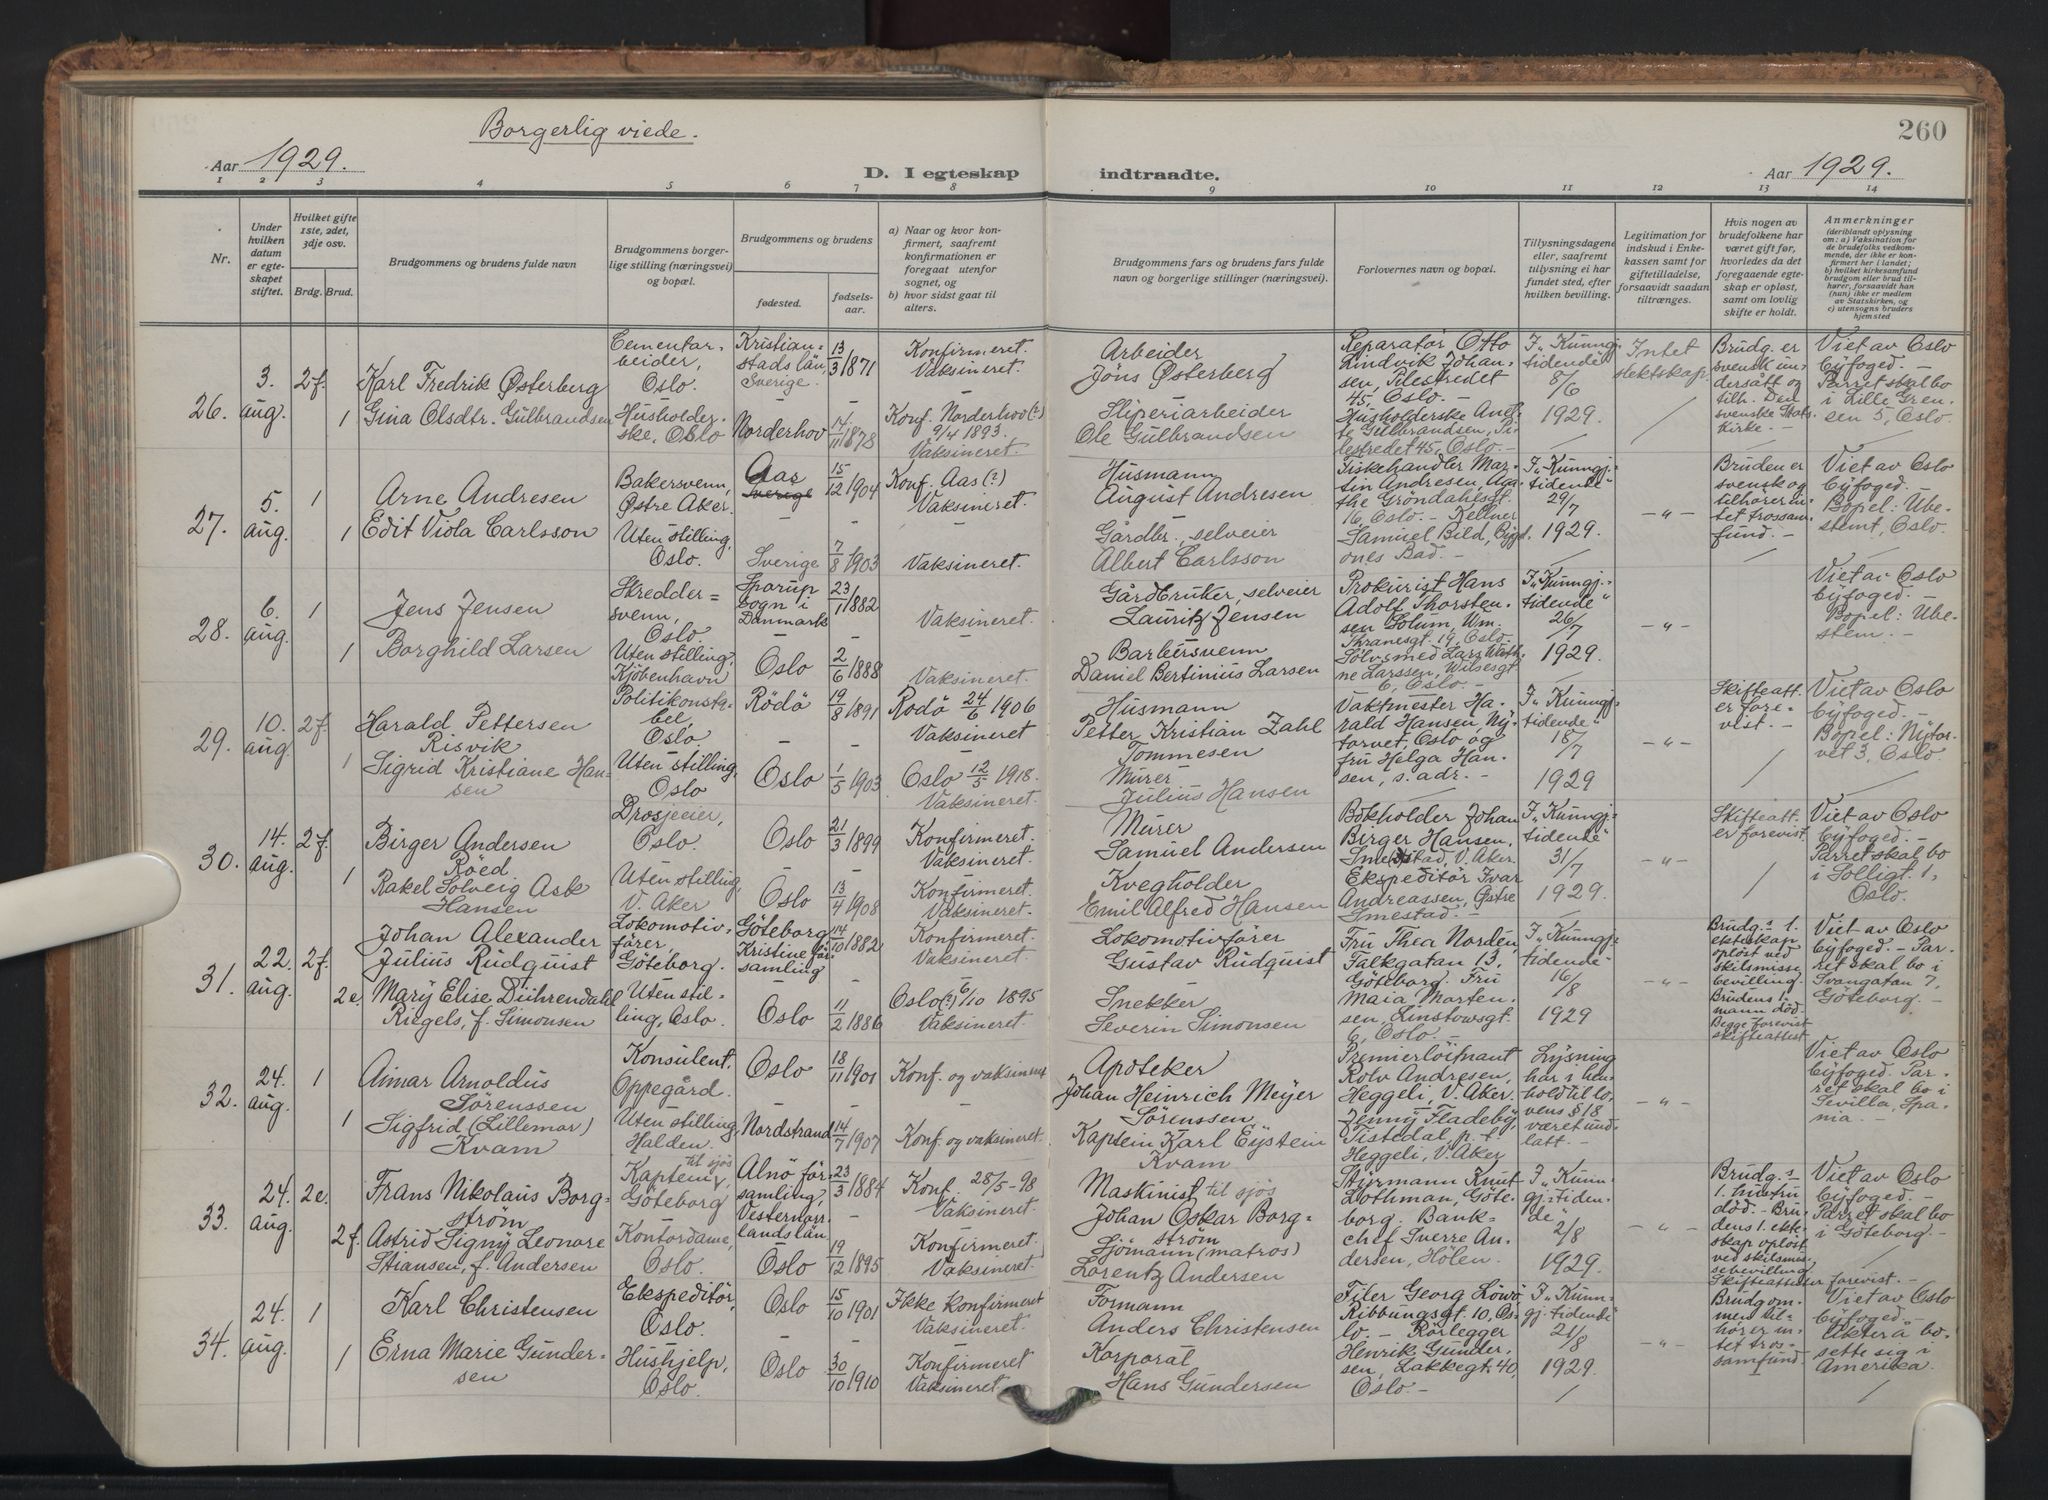 Borgerlig viede.
260
Aar 1929.
D. I egteskap
indtraadte.
Aar 1929.
1 2 3 4 5 6 7 8 9 10 11 12 13 14
Nr.
Under hvilken datum er egteskapet stiftet.
Hvilket gifte 1ste, 2det, 3dje osv.
Brdg. Brud.
Brudgommens og brudens fulde navn
Brudgommens borgerlige stilling (næringsvei) og bopæl.
Brudgommens og brudens
fødested.
fødselsaar.
a) Naar og hvor konfirmert, saafremt konfirmationen er foregaat utenfor sognet, og
b) hvor sidst gaat til alters.
Brudgommens fars og brudens fars fulde navn og borgerlige stillinger (næringsvei).
Forlovernes navn og bopæl.
Tillysningsdagene eller, saafremt tillysning ei har fundet sted, efter hvilken bevilling.
Legitimation for indskud i Enkekassen samt for giftetilladelse, forsaavidt saadan tiltrænges.
Hvis nogen av brudefolkene har været gift før, hvorledes da det foregaaende egteskap er opløst, samt om lovlig skifte er holdt.
Anmerkninger
(deriblandt oplysning om: a) Vaksination for de brudefolks vedkommende, der ikke er konfirmert her i landet; b) hvilket kirkesamfund brudgom eller brud tilhører, forsaavidt han (hun) ikke er medlem av Statskirken, og c) utensogns bruders hjemsted
26. 3. aug. 2f. Karl Fredrik Østerberg
Cementarbeider, Oslo.
Kristianstads län, Sverige.
13/3 1871
Konfirmeret. Vaksineret.
Arbeider Jöns Østerberg
Reparatør Otto Lindvik Johansen, Pilestredet 45, Oslo.
I „Kunngj. tidende“ 8/6 1929.
Intet slektskap.
Brudg. er svensk undersått og tilh. Den svenske Statskirke.
Viet av Oslo byfoged. Parret skal bo i Lille Grensen 5, Oslo.
1 Gina Olsdtr. Gulbrandsen
Husholderske, Oslo
Norderhov
14/11 1878
Konf. Norderhov (?) 9/4 1893. Vaksineret.
Sliperiarbeider Ole Gulbrandsen
Husholderske Anette Gulbrandsen, Pilestredet 45, Oslo.
27. 5. aug. 1 Arne Andresen
Bakersvenn, Østre Aker.
Aas
15/12 1904
Konf. Aas (?) Vaksineret.
Husmann August Andresen
Fiskehandler Martin Andresen, Agathe Gröndahlsgt. 16, Oslo.
I „Kunngj. tidende“ 29/7 1929.
Bruden er svensk og tilhører intet trossamfund.
Viet av Oslo byfoged. Bopel: Ubestemt, Oslo.
1 Edit Viola Carlsson
Uten stilling, Oslo.
Sverige
7/8 1903
Vaksineret.
Gårdbr., selveier Albert Carlsson
Kellner Samuel Bild, Bygdönes Bad.
28. 6. aug. 1 Jens Jensen
Skreddersvenn, Oslo.
Sparup sogn i Danmark
23/11 1882
Vaksineret.
Gårdbruker, selveier Lauritz Jensen
Prokurist Hans Adolf Thorstensen Solum, Wm. Thranesgt. 19, Oslo.
I „Kunngj. tidende“ 26/7 1929.
Viet av Oslo byfoged. Bopel: Ubestem.
1 Borghild Larsen
Uten stilling, Kjöbenhavn
Oslo
2/6 1888
Vaksineret.
Barbersvenn Daniel Bertinius Larsen
Sølvsmed Lars Larssen, Wilsesgt 6, Oslo.
29. 10. aug. 2f. Harald Pettersen Risvik
Politikonstabel, Oslo.
Rödö
19/8 1891
Rodö 24/6 1906 Vaksineret
Husmann Petter Kristian Zahl Tommesen
Vaktmester Harald Hansen, Nytorvet, Oslo og fru Helga Hansen, s. adr.
I „Kunngj. tidende“ 18/7 1929
Skifteatt. er forevist.
Viet av Oslo byfoged. Bopel: Nytorvet 3, Oslo.
1 Sigrid Kristiane Hansen
Uten stilling, Oslo
Oslo
1/5 1903
Oslo 12/5 1918. Vaksineret.
Murer Julius Hansen
30. 14. aug. 2f. Birger Andersen Röed
Drosjeeier, Oslo.
Oslo
21/3 1899
Konfirmeret. Vaksineret.
Murer Samuel Andersen
Bokholder Johan Birger Hansen, Smestad, V. Aker.
I „Kunngj. tidende“ 31/7 1929.
Skifteatt. er forevist.
Viet av Oslo byfoged. Parret skal bo i Solligt. 1, Oslo.
1 Rakel Solveig Ask Hansen
Uten stilling, V. Aker
Oslo
13/4 1908
Konfirmeret. Vaksineret.
Kvegholder Emil Alfred Hansen
Ekspeditör Ivar Andreassen, Østre Smestad.
31. 22. aug. 2f. Johan Alexander Julius Rudquist
Lokomotivförer, Göteborg.
Göteborg Kristine församling
14/10 1882
Konfirmeret. Vaksineret.
Lokomotivförer Gustav Rudquist
Fru Thea Norden, Falkgatan 13, Göteborg.
I „Kunngj. tidende“ 16/8 1929
Brudg.s 1. ekteskap oplöst ved skilsmisse bevilling. Brudens 1. mann död. Begge forevist skifteattest.
Viet av Oslo byfoged. Parret skal bo i Svangatan 7, Göteborg.
2e. Mary Elise Dührendahl Riegels, f. Simonsen
Uten stilling, Oslo.
Oslo
11/2 1886
Oslo (?) 6/10 1895 Vaksineret.
Snekker Severin Simonsen
Fru Maia Martensen, Linstowsgt. 6, Oslo.
32. 24. aug. 1 Aimar Arnoldus Sörenssen
Konsulent, Oppegård.
Oslo
18/11 1901
Konf. og vaksineret
Apoteker Johan Heinrich Meyer Sörenssen
Premierlöitnant Rolv Andresen, Heggeli, V. Aker.
Lysning har i henhold til lovens § 18 været undlatt.
Viet av Oslo byfoged. Parret skal bo i Sevilla, Spania.
1 Sigfrid (Lillemor) Kvam
Uten stilling, Halden.
Nordstrand
14/7 1907
Konf. og vaksineret.
Kaptein Karl Eystein Kvam
Jenny Fladeby, Tistedal, p. t. Heggeli, V. Aker
33. 24. aug. 2e. Frans Nikolaus Borgström
Kaptein til sjös, Göteborg
Alnö församling, Vesternorrlandslän
23/3 1884
Konf. 28/5-98 Vaksineret.
Maskinist til sjös Johan Oskar Borgström
Styrmann Knut Lothman, Göteborg.
I „Kunngj. tidende“ 2/8 1929.
Brudg.s 1. hustru död. Brudens 1. ekteskap oplöst ved skilsmissebevilling. Skifteattester forevist.
Viet av Oslo byfoged. Parret skal bo i Göteborg.
2f. Astrid Signy Leonore Stiansen, f. Andersen
Kontordame, Oslo.
Oslo
19/12 1895
Konfirmeret. Vaksineret.
Sjömann (matros) Lorentz Andersen
Bankchef Sverre Andersen, Hölen.
34. 24. aug. 1 Karl Christensen
Ekspeditör, Oslo.
Oslo
15/10 1901
Ikke konfirmeret Vaksineret.
Formann Anders Christensen
Filer Georg Löwö, Ribbungsgt. 10, Oslo.
I „Kunngj. tidende“ 21/8 1929.
Brudgommen tilhörer intet trossamfund.
Viet av Oslo byfoged. Akter å bosette sig i Amerika.
1 Erna Marie Gundersen
Hushjelp, Oslo.
Oslo
30/10 1910
Konfirmeret Vaksineret.
Korporal Hans Gundersen
Rörlegger Henrik Gundersen, Lakkegt. 40, Oslo.